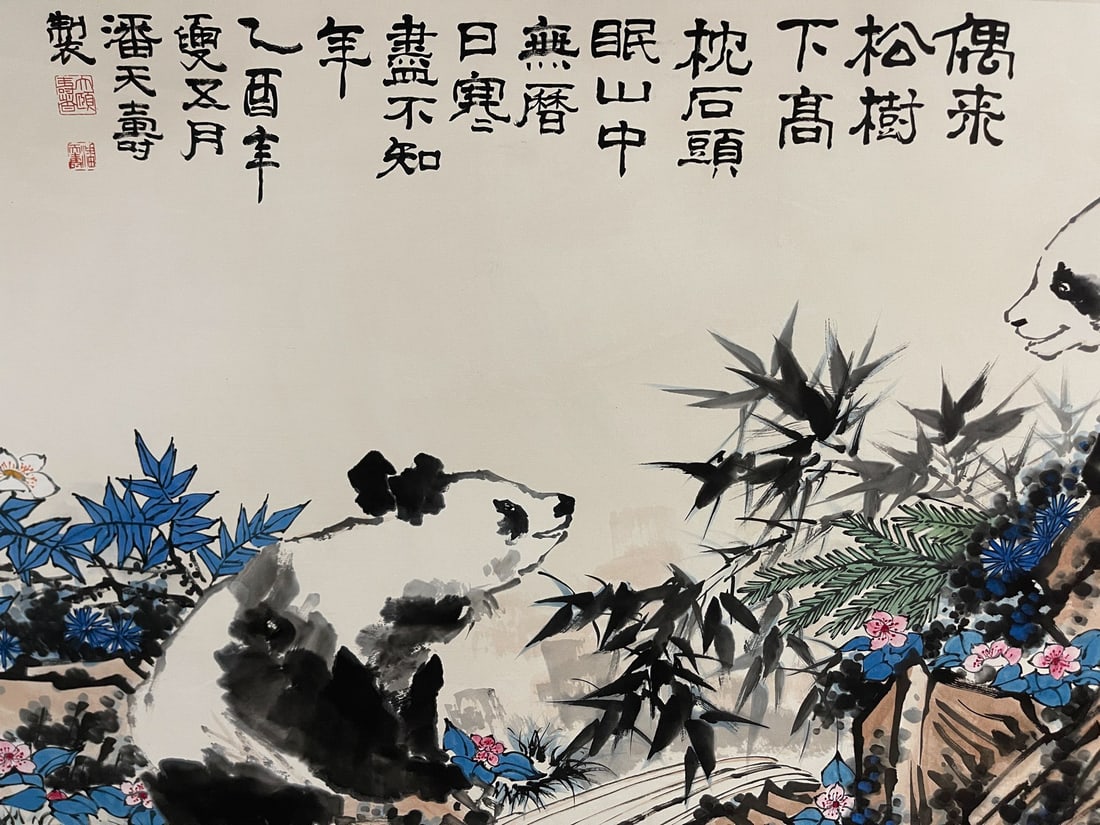 偶来
松樹
下高
枕石頭
眠山中
無曆
日寒
盡不知
年
乙酉年
夏五月
潘天壽
製